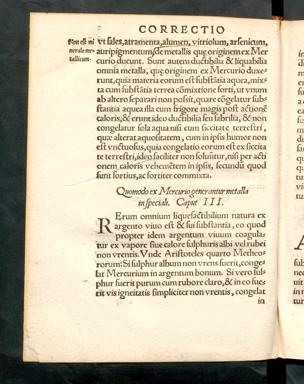 CORRECTIO
Non est mi
nerale me-
tallicum.
vt sales, atramenta, alumen, vitriolum, arsenicum,
auripigmentum, de metallis que originem ex Mer
curio ducunt. Sunt autem ductibilia & liquabilia
omnia metalla, que originem ex Mercurio duxe-
runt, quia materia eorum est substãtia aquea, mix-
ta cum substãtia terrea cõmixtione forti, vt vnum
ab altero separari non possit, quare cõgelatur sub-
stantia aquea illa cum frigore magis post actionẽ
caloris, & erunt ideo ductibilia seu fabrilia, & non
congelatur sola aqua nisi cum siccitate terrestri,
quæ alterat aqueitatem, cum in ipsis humor non
est vnctuosus, quia congelatio eorum est ex siccita
te terrestri, ideo faciliter non soluitur, nisi per acti
onem caloris vehementem in ipsis, secundũ quod
sunt fortius, ac fortiter commixta.
Quomodo ex Mercurio generantur metalla
in speciali. Caput III.
RErum omnium liquefactibilium natura ex
argento viuo est & sui substantia, eo quod
propter idem argentum viuum coagula-
tur ex vapore siue calore sulphuris albi vel rubei
non vrentis. Vnde Aristoteles quarto Metheo-
rorum: Si sulphur album non vrens fuerit, conge-
lat Mercurium in argentum bonum. Si vero sul-
phur fuerit purum cum rubore claro, & in eo fue-
rit vis igneitatis simpliciter non vrentis, congelat
in